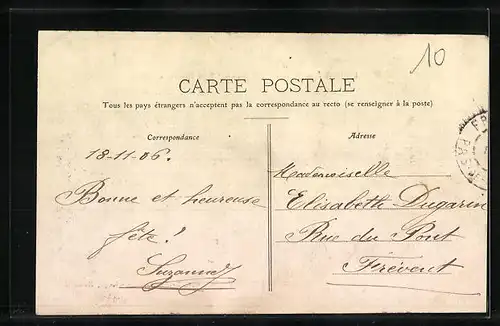 10
CARTE POSTALE
Tous les pays étrangers n'acceptent pas la correspondance au recto (se renseigner à la poste)
Correspondance
18-11-06.
Bonne et heureuse
fête!
Suzanne
Adresse
Mademoiselle
Elisabeth Dugarin
Rue du Pont
Frévent